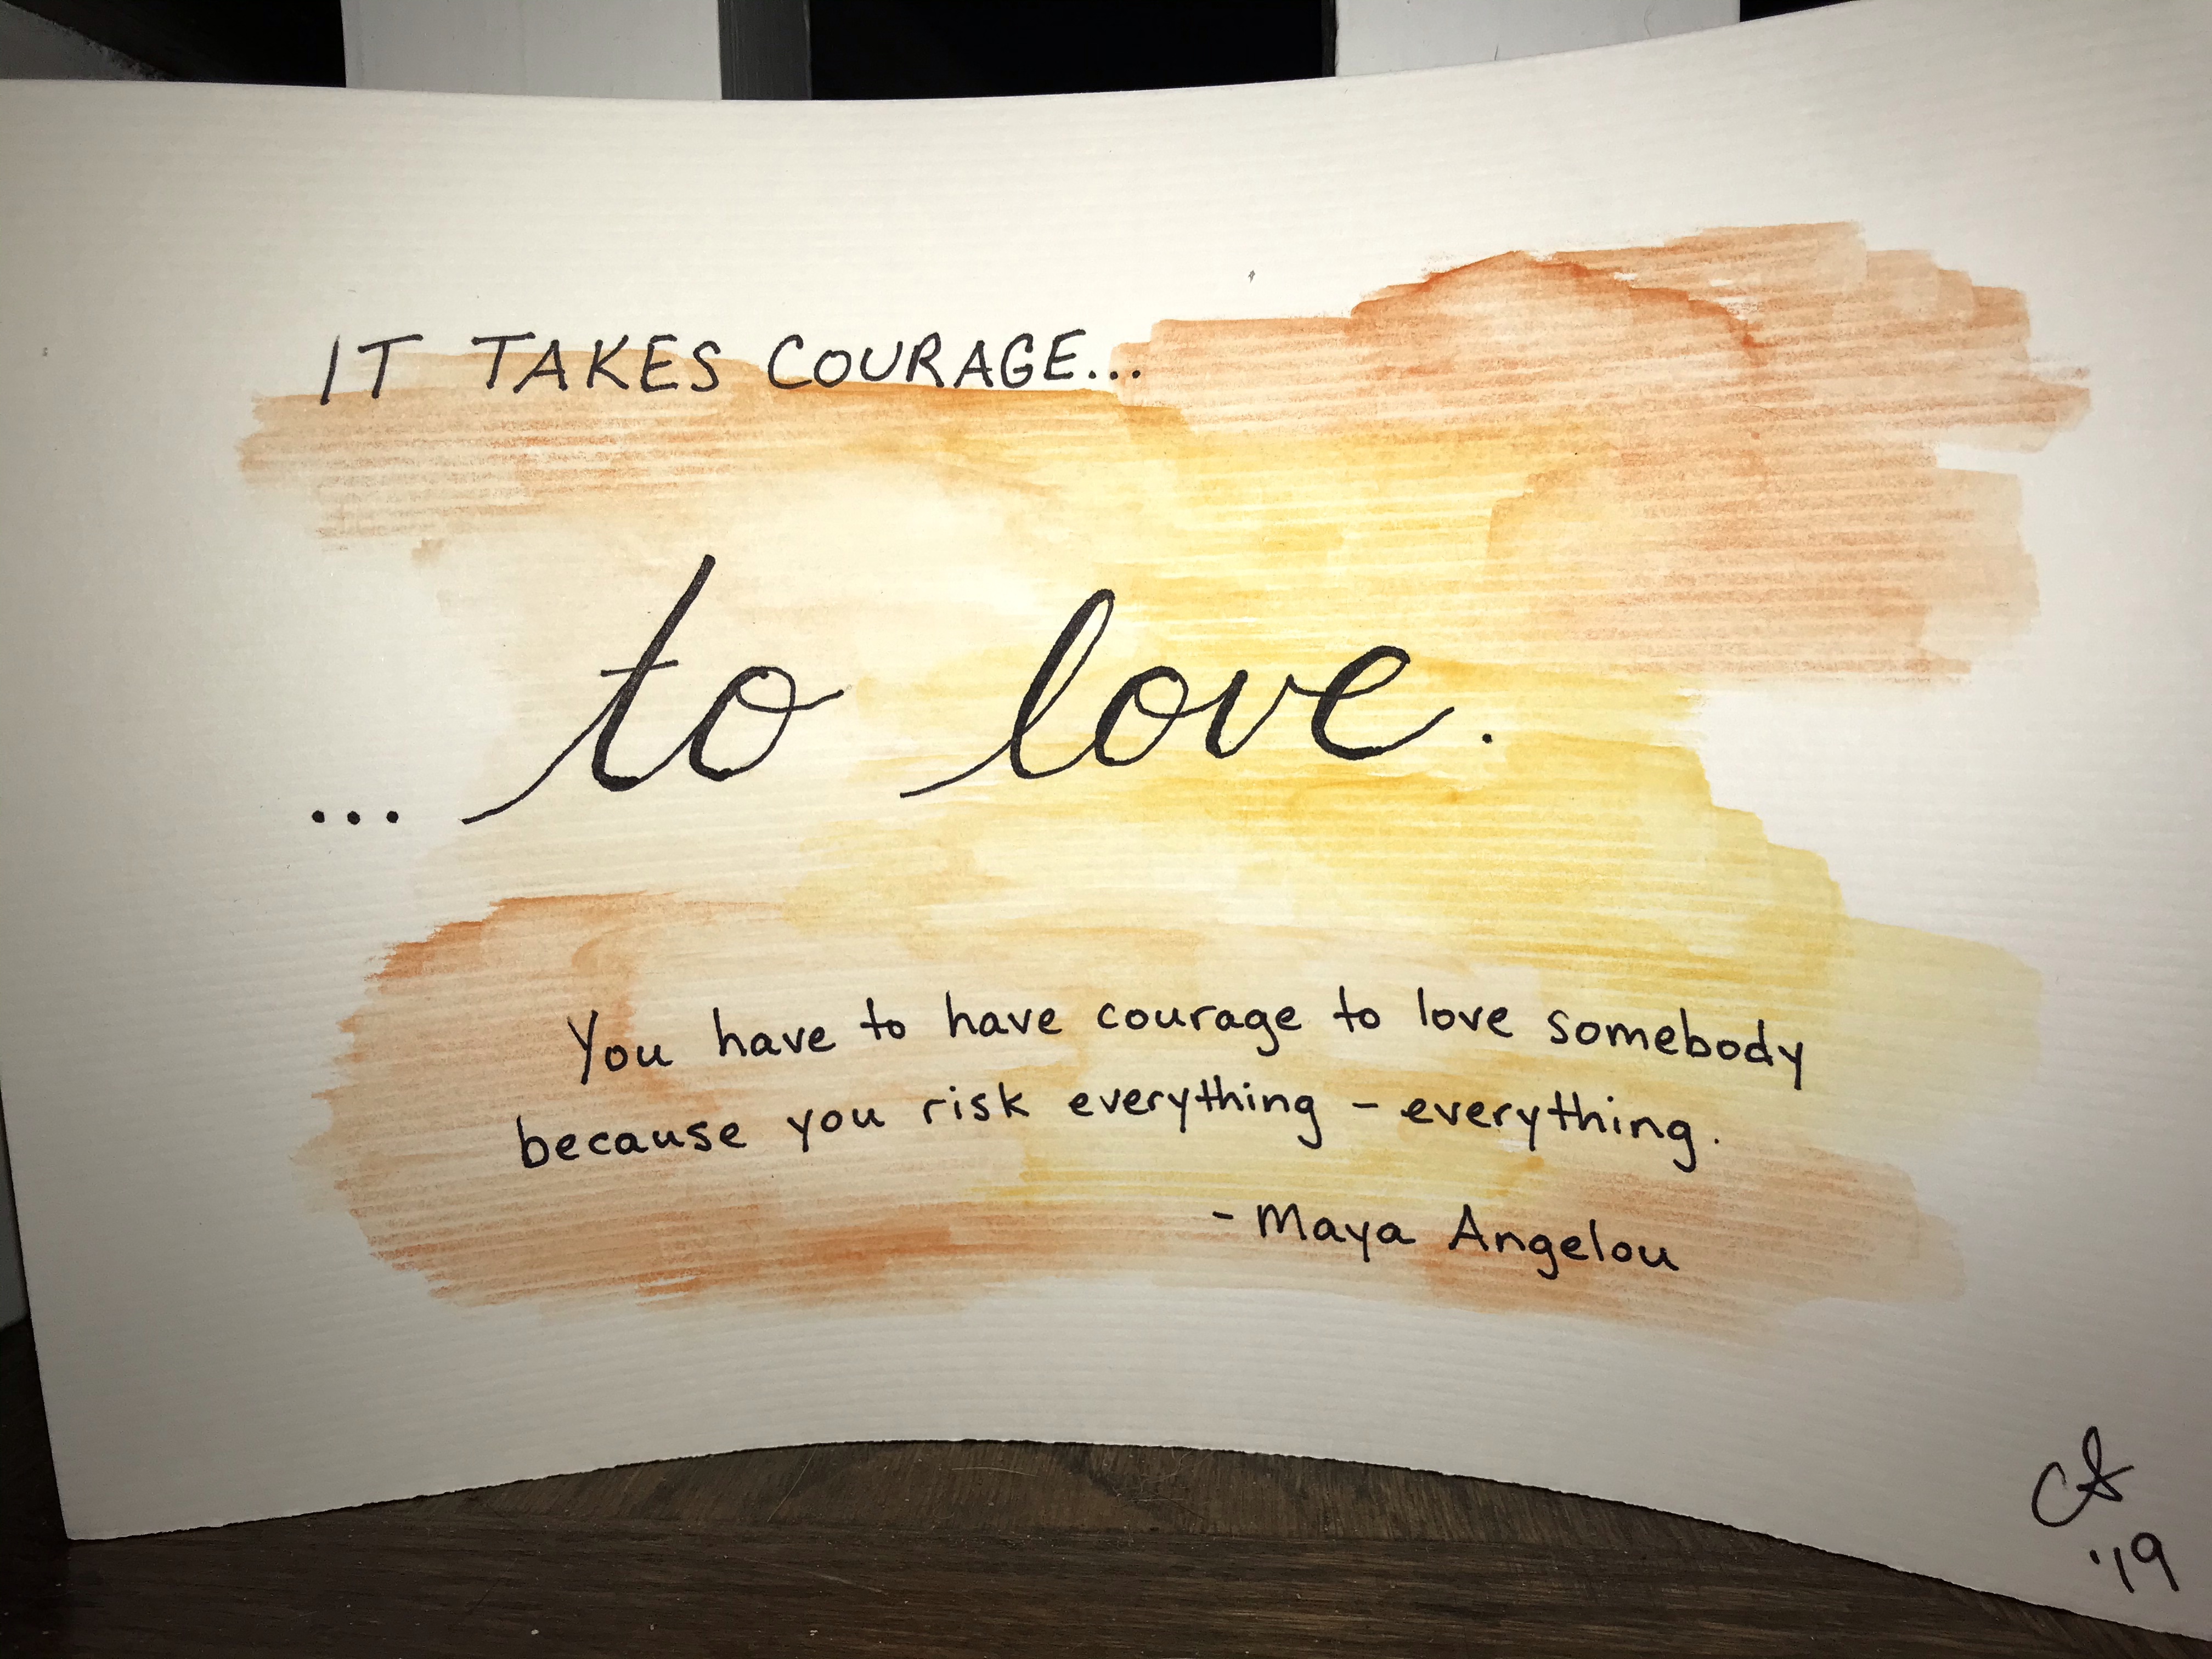 IT TAKES COURAGE...
... to love.
You have to have courage to love somebody
because you risk everything - everything.
- Maya Angelou
'19